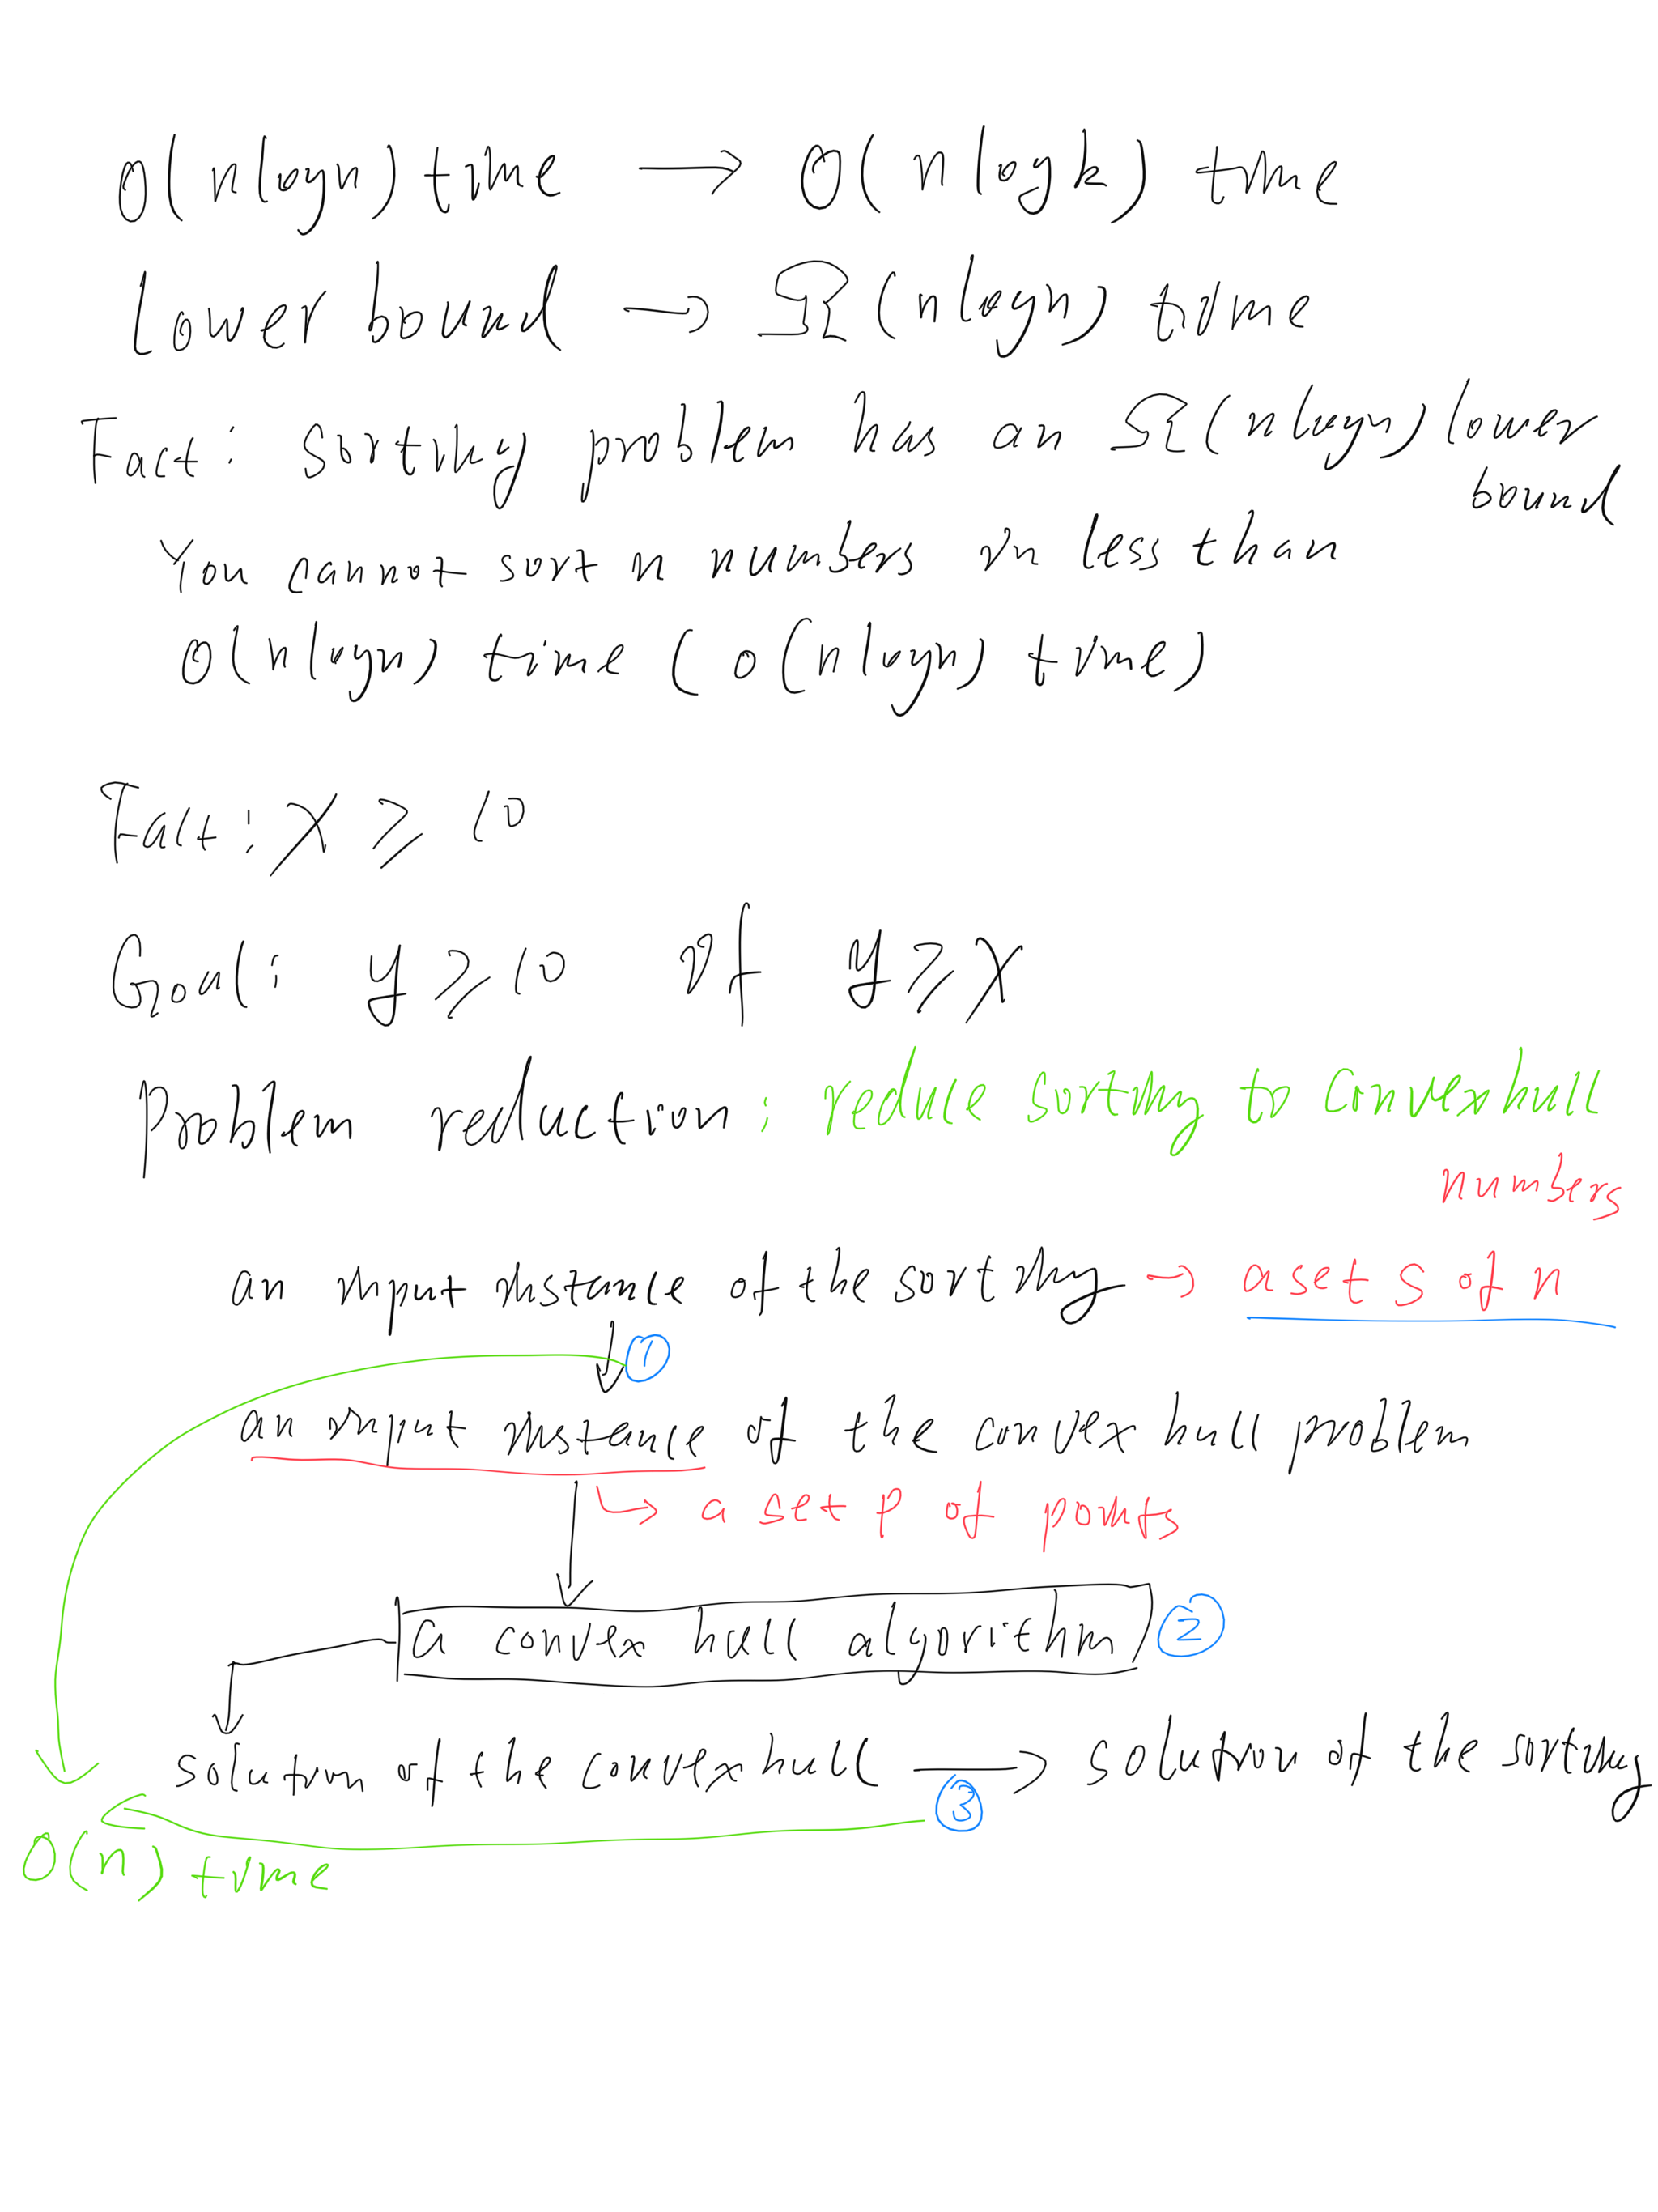 O(nlogn) time → O(nlogk) time
Lower bound → Ω(nlogn) time
Fact: sorting problem has an Ω(nlogn) lower
bound
You cannot sort n numbers in less than
O(nlogn) time (o(nlogn) time)
Fact: x ≥ 10
Goal: y ≥ 10 if y ≥ x
Problem reduction: reduce sorting to convex hull
numbers
an input instance of the sorting → a set S of n
①
an input instance of the convex hull problem
↳ a set P of points
a convex hull algorithm ②
solution of the convex hull → solution of the sorting
③
O(n) time